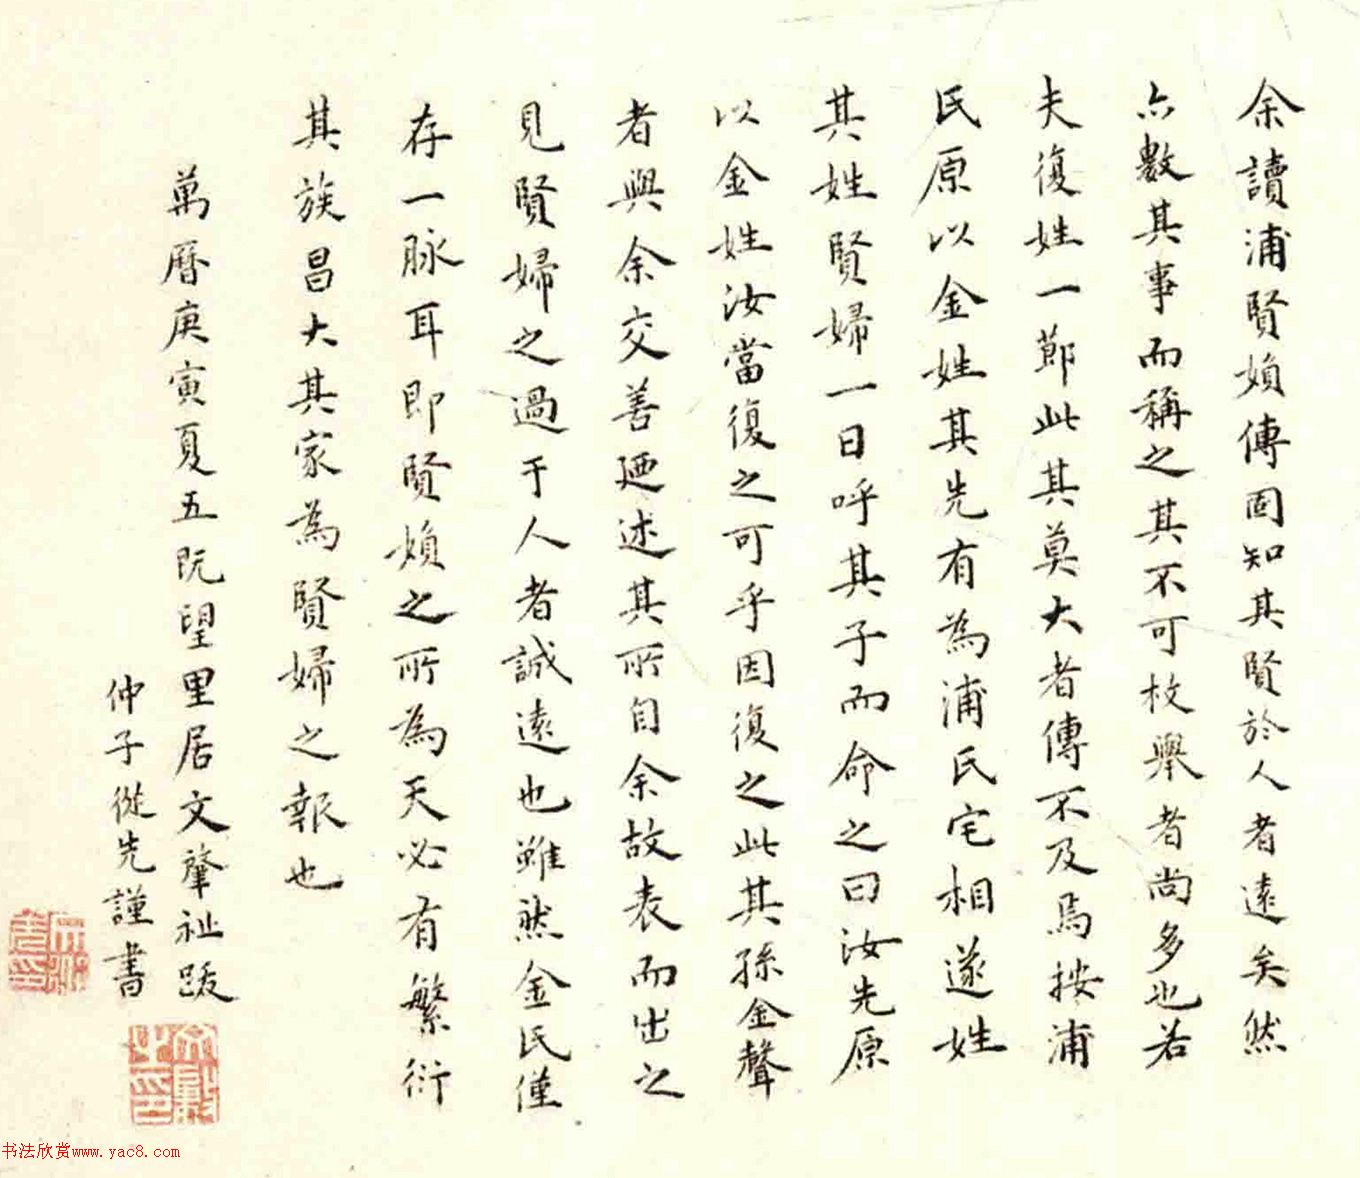 余讀浦賢媍傳固知其賢於人者遠矣然
亦數其事而稱之其不可枚舉者尚多也若
夫復姓一節此其莫大者傳不及焉按浦
氏原以金姓其先有為浦氏宅相遂姓
其姓賢婦一日呼其子而命之曰汝先原
以金姓汝當復之可乎因復之此其孫金聲
者與余交善廼述其所自余故表而出之
見賢婦之過于人者誠遠也雖然金氏僅
存一脉耳即賢媍之所為天必有繁衍
其族昌大其家為賢婦之報也
萬曆庚寅夏五既望里居文肇祉跋
仲子從先謹書
书法欣赏www.yac8.com